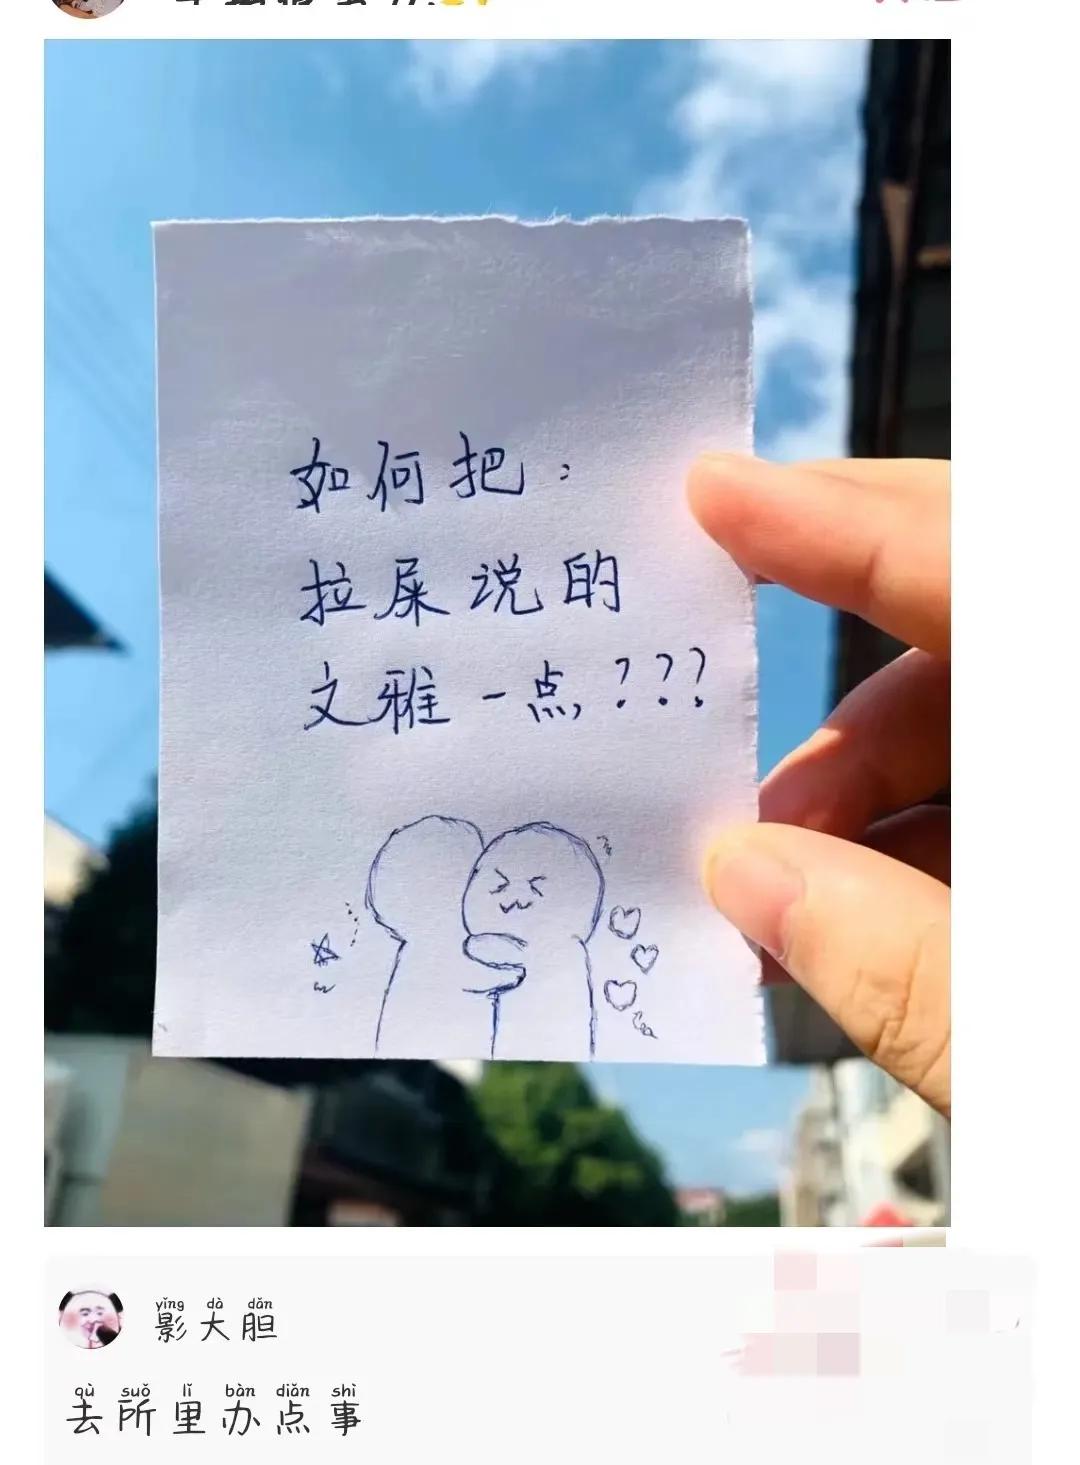 如何把：
拉屎说的
文雅一点，???
yǐng dà dǎn
影大胆
qù suǒ lǐ bàn diǎn shì
去所里办点事